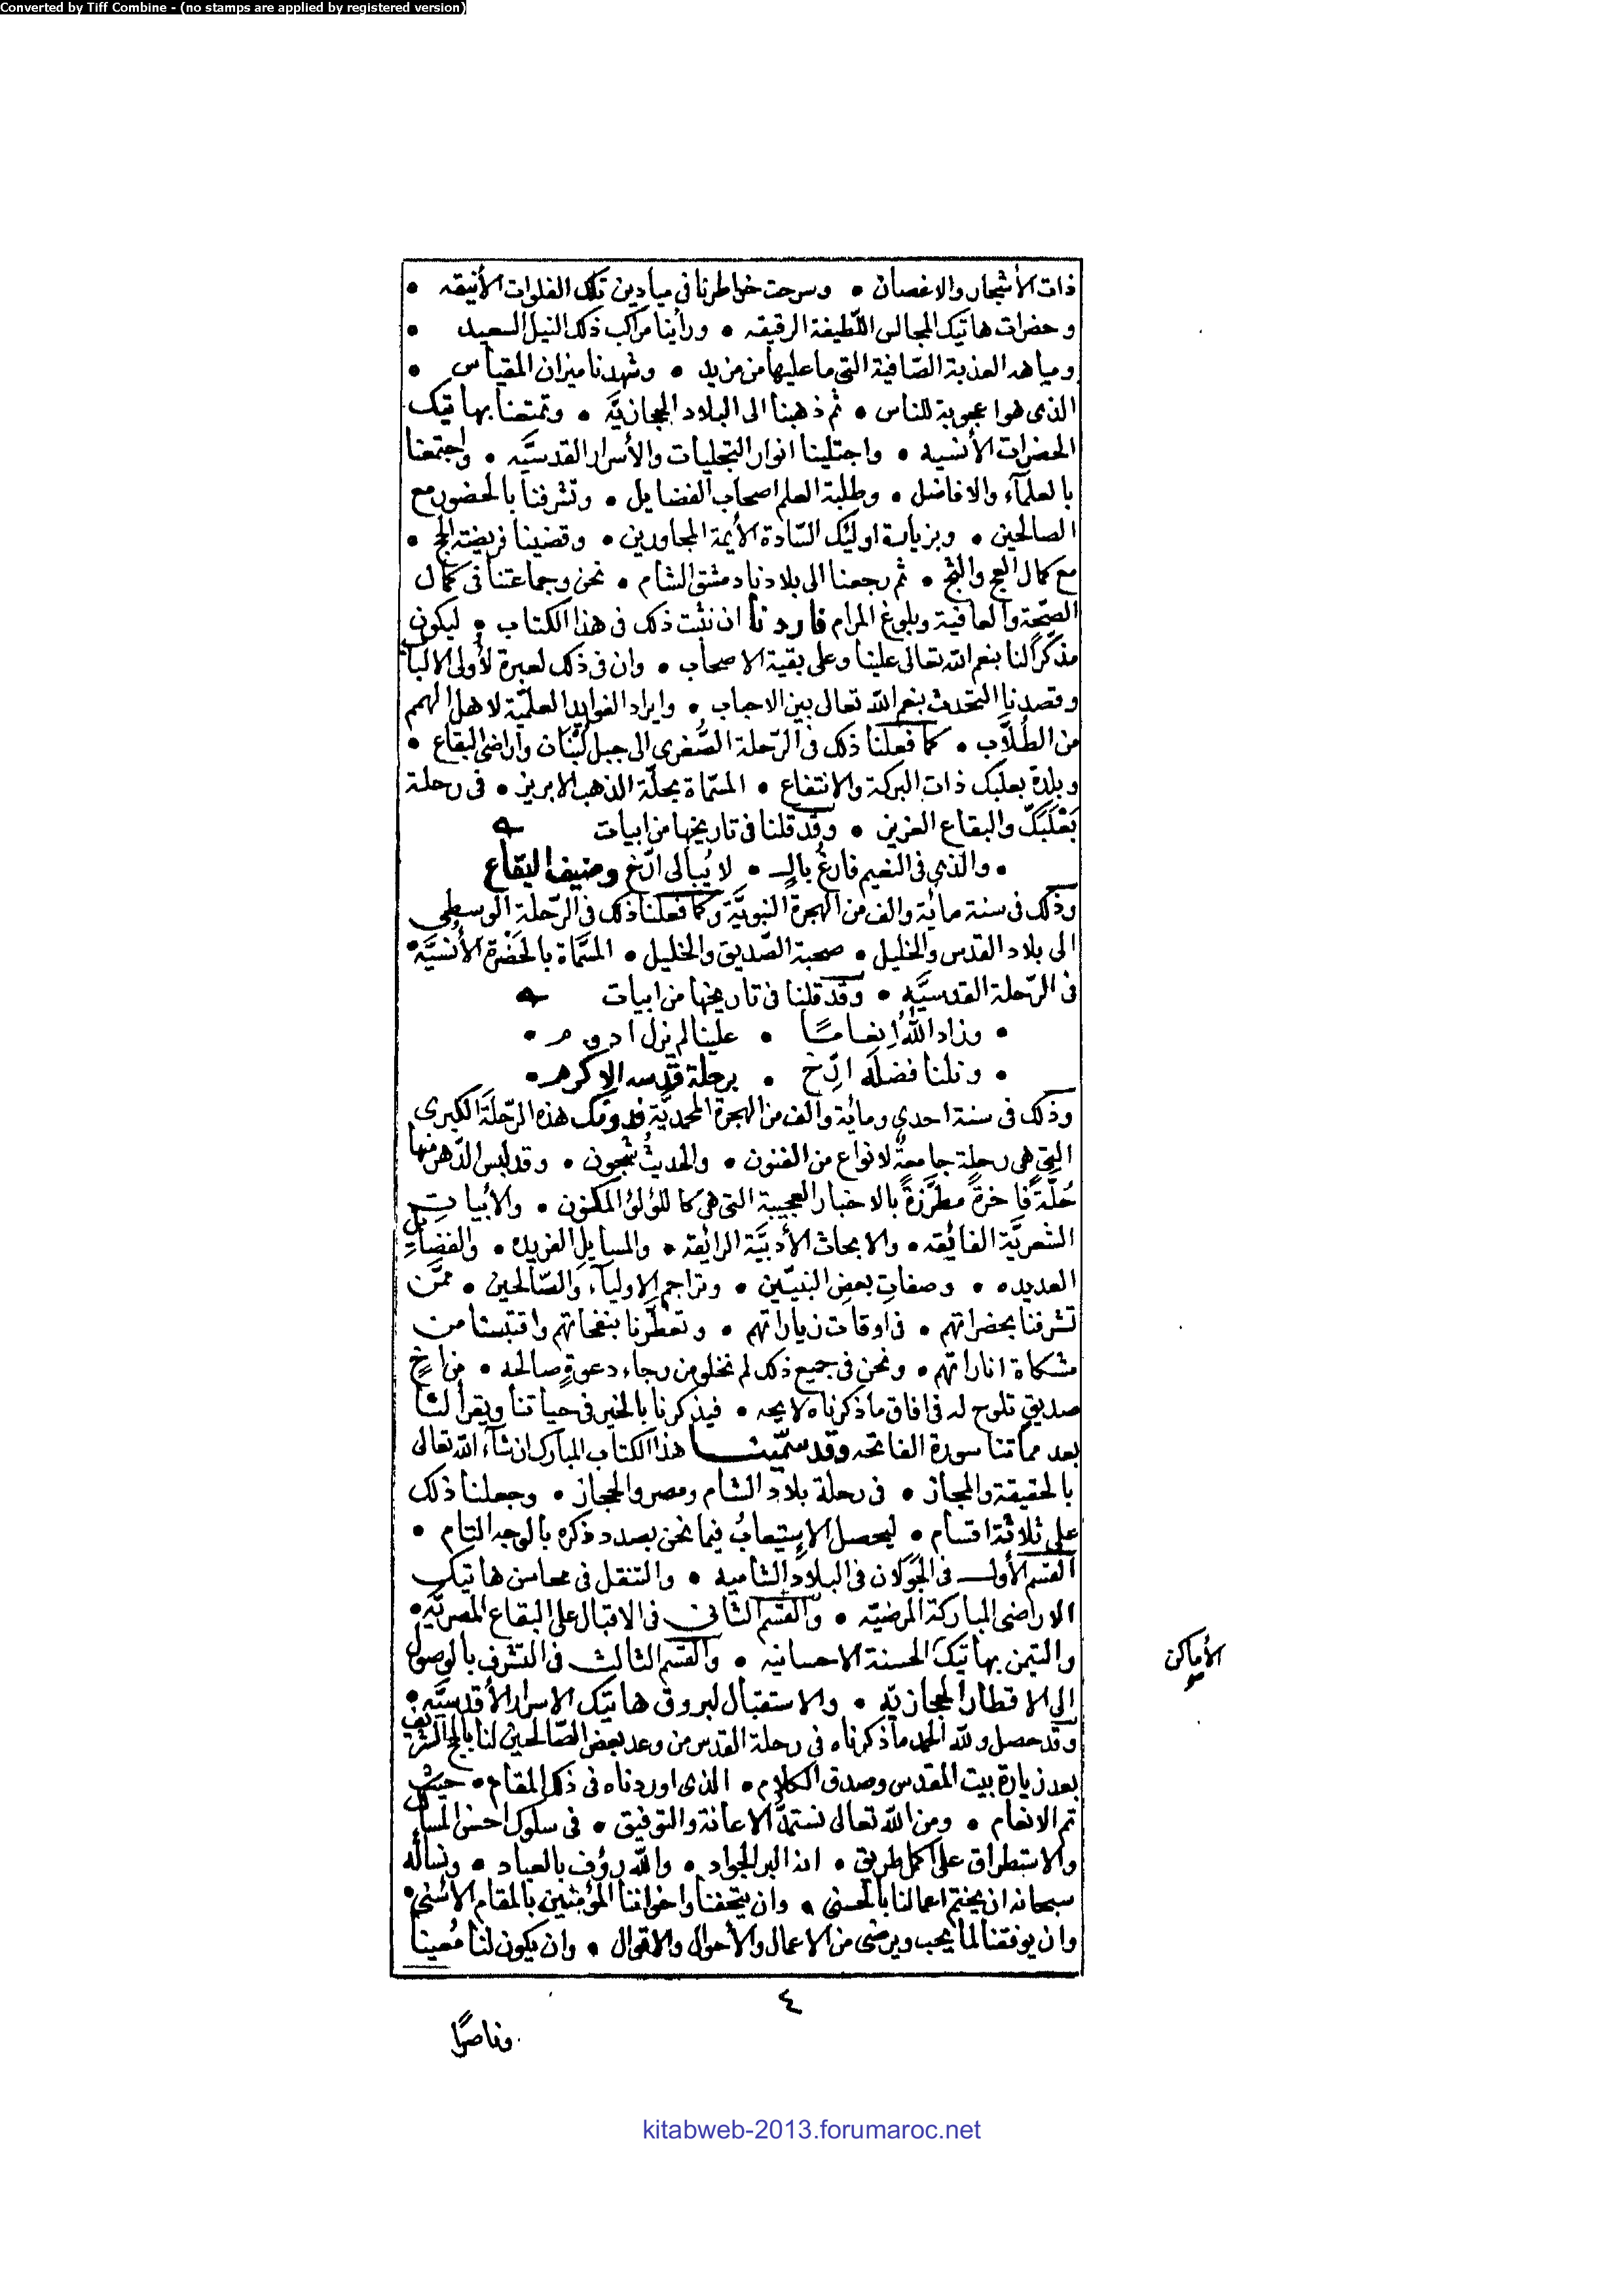 Converted by Tiff Combine - (no stamps are applied by registered version)
ذات الأشجار والاغصان • وسرحت خواطرنا فى ميادين تلك الفلوات الأنيقه •
وحضرات هاتيك المجالس اللّطيفة الرقيقه • ورأينا مراكب ذلك النيل السعيد •
ومياهه العذبة الصّافية التى ما عليها من مزيد • وشهدنا ميزان المقياس •
الذى هو اعجوبة للناس • ثم ذهبنا الى البلاد الحجازيَّه • وتمتعنا بهاتيك
الحضرات الأنسيه • واجتلينا انوار التجليات والأسرار القدسيَّه • واجتمعنا
بالعلمآء والافاضل • وطلبة العلم اصحاب الفضايل • وتشرفنا بالحضور مع
الصالحين • وبزيارة اوليك السّادة الأيمة المجاورين • وقضينا فريضة الحج •
مع كمال العج والثج • ثم رجعنا الى بلادنا دمشق الشام • نحن وجماعتنا فى كمال
الصّحّة والعافية وبلوغ المرام فاردنا ان نثبت ذلك فى هذا الكتاب • ليكون
مذكرًا لنا بنعم الله تعالى علينا وعلى بقية الاصحاب • وان فى ذلك لعبرة لأولى الالباب
وقصدنا التحدث بنعم الله تعالى بين الاحباب • وايراد الفوايد العلميّة لاهل الهمم
من الطُلاَّب • كما فعلنا ذلك فى الرّحلة الصُّغرى الى جبل لبْنَان واراضى البقاع •
وبلدة بعلبك ذات البركة والانتفاع • المسمّاة بحلّة الذهب الابريز • فى رحلة
بَعْلَبَكّ والبقاع العزيز • وقد قلنا فى تاريخها من ابيات
• والذي فى النعيم فارغُ بالٍ • لا يُبالى ارّخ وضيف البقاع
وذلك فى سنة مائة والف من الهجرة النبويَّة وكما فعلنا ذلك فى الرّحلة الوسطى
الى بلاد القدس والخليل • صحبة الصّديق والخليل • المسّماة بالحَضْرة الأُنْسيَّة •
فى الرّحلة القدسيَّه • وقد قلنا فى تاريخها من ابيات
• وزاد اللهُ إنعامًا • علينا لم نزل ادوم •
• ونلنا فضلَه ارّخ • برحلة قدسه الاكرم •
وذلك فى سنة احدى ومائة والف من الهجرة المحمديَّة فدونك هذه الرّحلَة الكبرى
التى هى رحلة جامعةٌ لانواع من الفنون • والحديثُ شجون • وقد لبس الدّهر منها
حُلّةً فاخرةً مطرَّزةً بالاخبار العجيبة التى هى كاللؤلؤ المكنون • والأبياتِ
الشعريَّة الفائقه • والابحاث الأدبيَّة الرائقة • والمسايلِ الفريده • والفضايلِ
العديده • وصفاتِ بعض النبيّين • وتراجم الاوليآء والصّالحين • ممَّن
تشرفنا بحضراتهم • فى اوقات زياراتهم • وتعطّرنا بنفحاتهم واقتبسنا من
مشكاة اناراتهم • ونحن فى جميع ذلك لم نخلو من رجاء دعوةٍ صالحه • من اخٍ
صديقٍ تلوح له فى افاق ما ذكرناه لايحه • فيذكرنا بالخير فى حياتنا ويقرأ لنا
بعد مماتنا سورة الفاتحه وقد سمّيت هذا الكتاب المبارك ان شآء الله تعالى
بالحقيقة والمجاز • فى رحلة بلاد الشام ومصر والحجاز • وجعلنا ذلك
على ثلاثة اقسام • ليحصل الاستيعابُ فيما نحن بصدد ذكره بالوجه التام •
القسم الأول فى الجَوَلان فى البلاد الشاميه • والتنقل فى محاسن هاتيك
الاراضى المباركة المرضيّه • والقسم الثانى فى الاقبال على البقاع المصريَّه •
والتيمن بهاتيك الحسنة الاحسانيه • والقسم الثالث فى التشرف بالوصول
الأماكن
الى الاقطار الحجازيّه • والاستقبال لبروق هاتيك الاسرار الأقدسيَّه •
وقد حصل ولله الحمد ما ذكرناه فى رحلة القدس من وعد بعض الصّالحين لنا بالحج الشريف
بعد زيارة بيت المقدس وصدق الكلام • الذى اوردناه فى ذلك المقام • حيث
تم الانعام • ومن الله تعالى نستمدّ الاعانة والتوفيق • فى سلوك احسن المسالك
والاستطراق على اكمل طريق • انه البر الجواد • والله رؤف بالعباد • ونساله
سبحانه ان يختم اعمالنا بالحسنى • وان يتحفنا واخواننا المؤمنين بالمقام الأسنى •
وان يوفقنا لما يحب ويرضى من الاعمال والأحوال والاقوال • وان يكون لنا مُعينا
٤
وناصرًا
kitabweb-2013.forumaroc.net